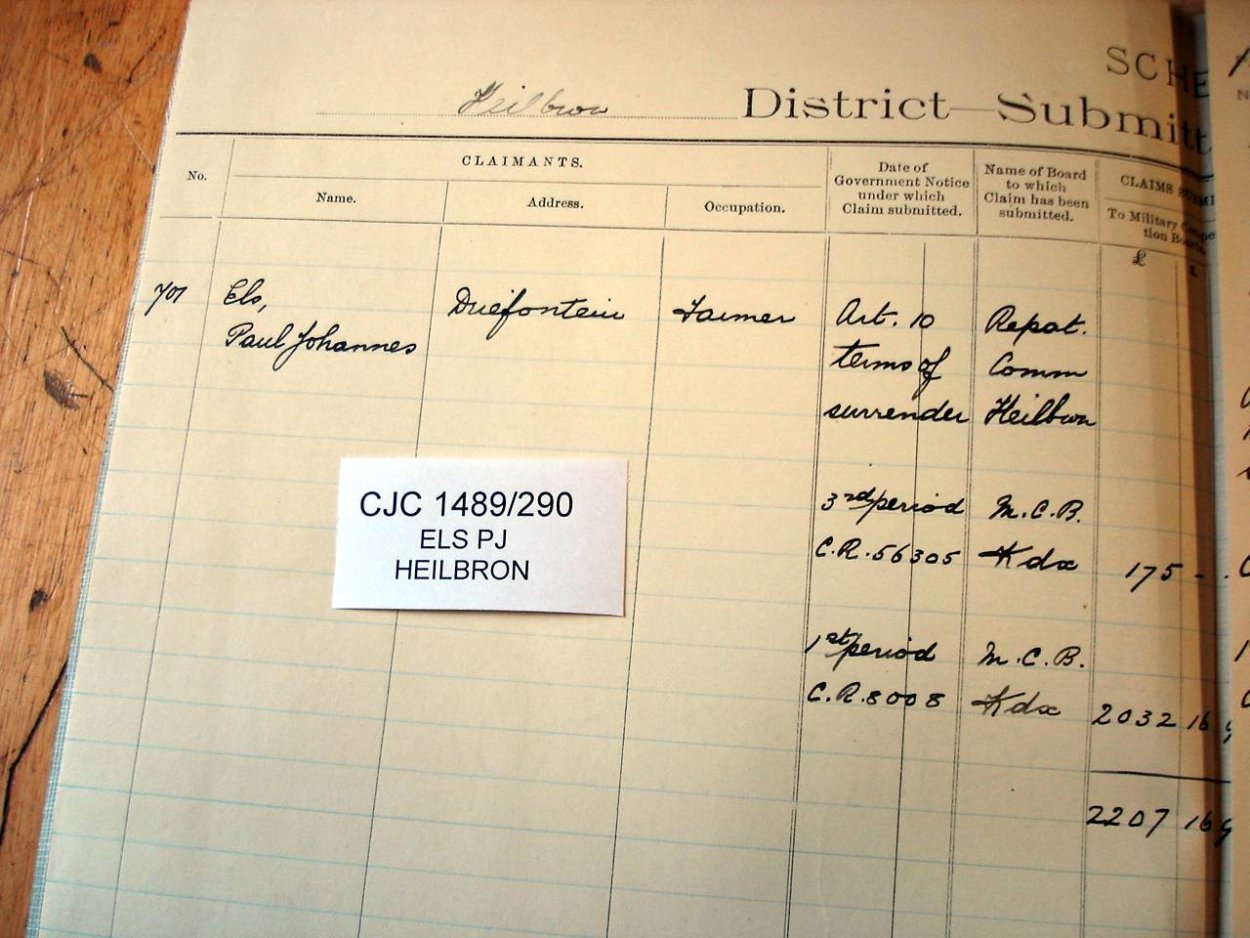 SCHE
Heilbron District—Submitt
No.
CLAIMANTS.
Name.
Address.
Occupation.
Date of
Government Notice
under which
Claim submitted.
Name of Board
to which
Claim has been
submitted.
CLAIMS
To Military
tion
£
701
Els,
Paul Johannes
Driefontein
Farmer
Art. 10
terms of
surrender
Repat.
Comm
Heilbron
3rd period
C.R. 56305
M.C.B.
Kdx
175 - .
1st period
C.R. 8008
M.C.B.
Kdx
2032 16
2207 16
CJC 1489/290
ELS PJ
HEILBRON